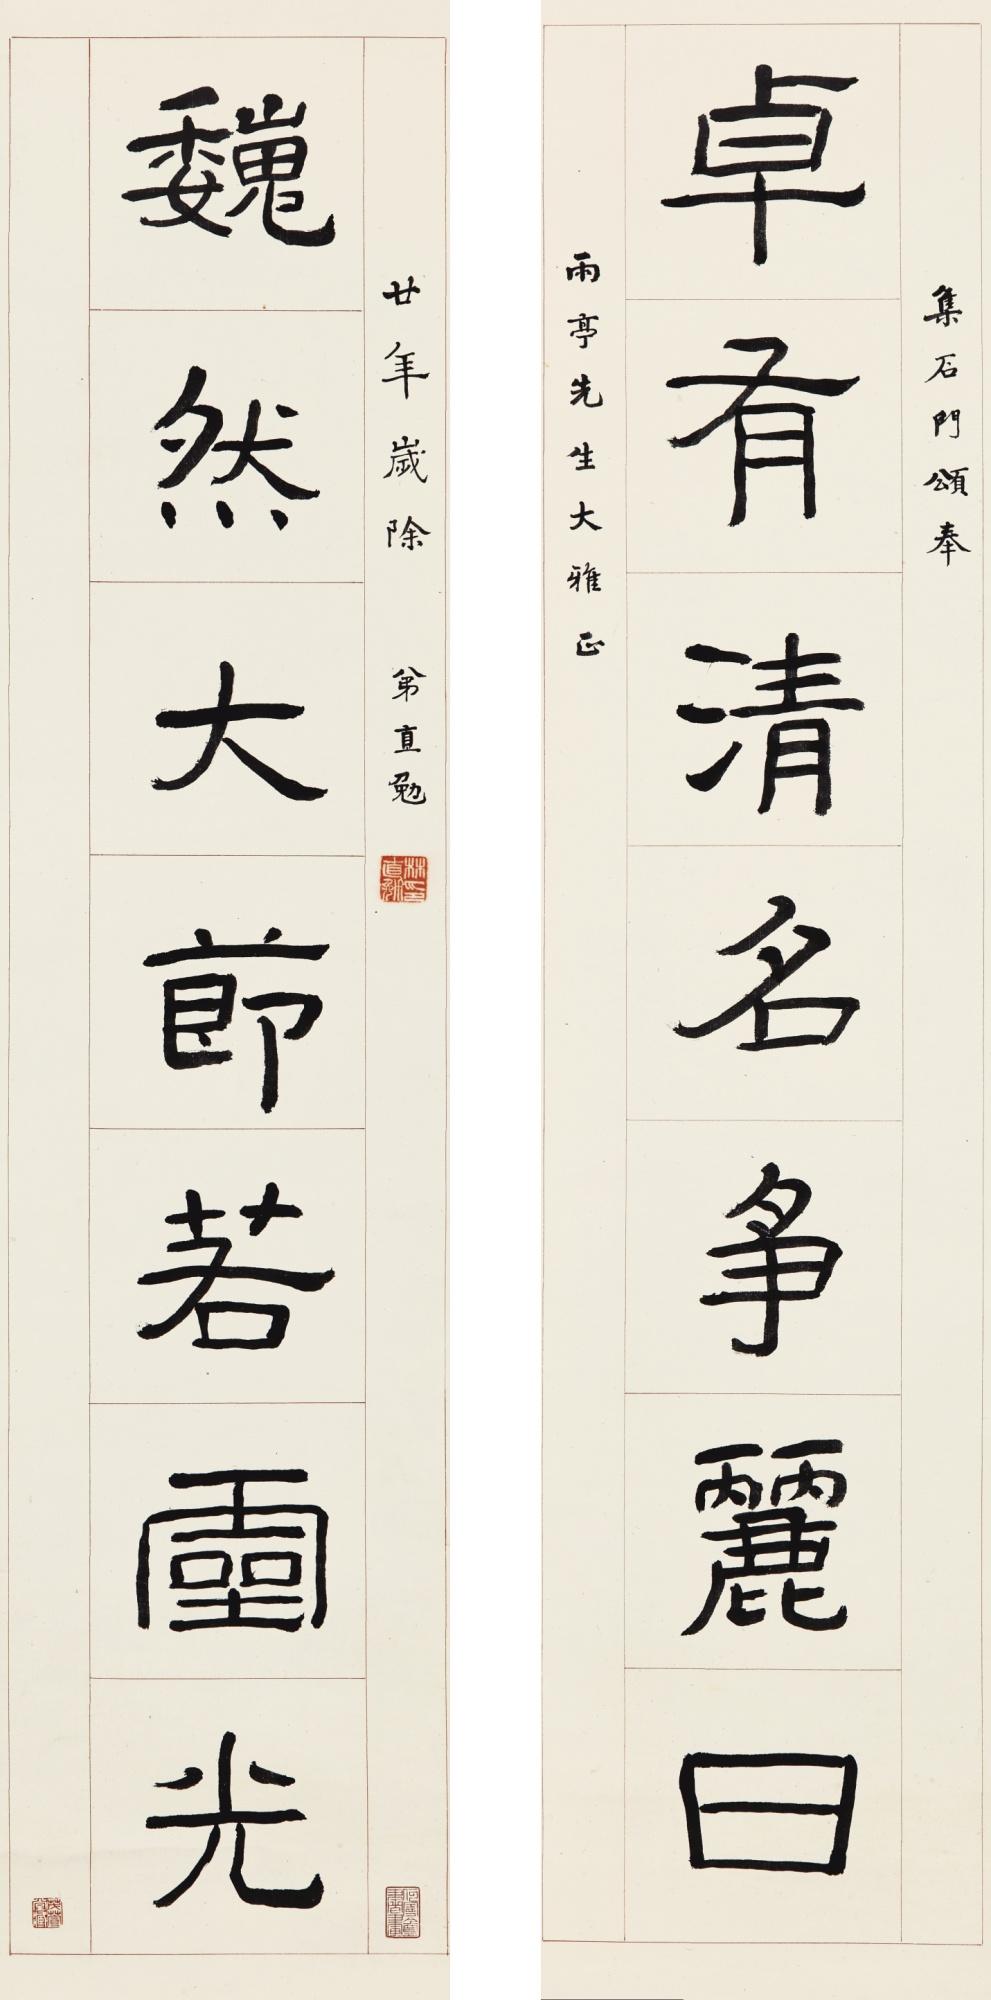 集石門頌奉
卓有清名争麗日
雨亭先生大雅正
廿年歲除 弟直勉
巍然大節若靈光
林直勉印